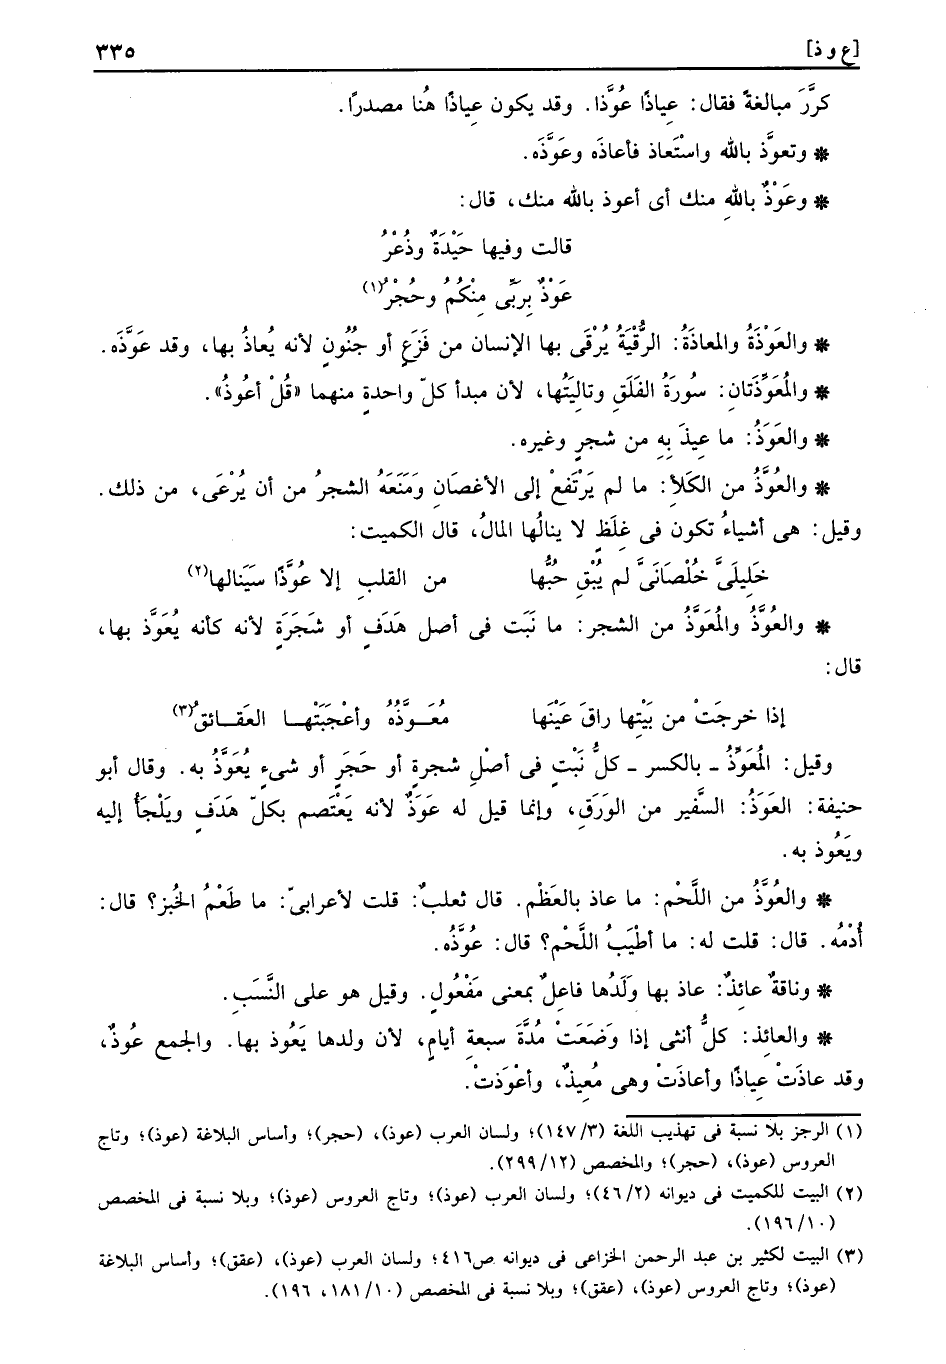 [ع و ذ] ٣٣٥
كرَّرَ مبالغةً فقال: عِياذًا عُوَّذا. وقد يكون عِياذًا هُنا مصدرًا.
* وتعوَّذ بالله واسْتَعاذ فأعاذَه وعَوَّذَه.
* وعَوْذٌ باللهِ منك أى أعوذ بالله منك، قال:
قالت وفيها حَيْدَةٌ وذُعْرُ
عَوْذٌ بِرَبِّى مِنْكُمُ وحُجْرُ(١)
* والعَوْذَةُ والمعاذَةُ: الرُّقْيَةُ يُرْقَى بها الإنسان من فَزَعٍ أو جنُونٍ لأنه يُعاذُ بها، وقد عَوَّذَه.
* والمُعَوِّذَتانِ: سُورَةُ الفَلَقِ وتالِيَتُها، لأن مبدأ كلّ واحدةٍ منهما «قُلْ أعُوذُ».
* والعَوَذُ: ما عِيذَ بِهِ من شجرٍ وغيره.
* والعُوَّذُ من الكَلأ: ما لم يَرْتَفعْ إلى الأغصَانِ ومَنَعَهُ الشجرُ من أن يُرْعَى، من ذلك.
وقيل: هى أشياءُ تكون فى غِلَظٍ لا ينالُها المالُ، قال الكميت:
خَلِيلَىَّ خُلْصَانَىَّ لم يُبْقِ حبُّها من القلبِ إلا عُوَّذًا سَيَنالها(٢)
* والعُوَّذُ والمُعَوَّذُ من الشجر: ما نَبَت فى أصل هَدَفٍ أو شَجَرَةٍ لأنه كأنه يُعَوَّذ بها،
قال:
إذا خرجَتْ من بَيْتِها راقَ عَيْنَها مُعَوَّذُهُ وأعْجَبَتْها العَقائقُ(٣)
وقيل: المُعَوِّذُ ـ بالكسر ـ كلُّ نَبْتٍ فى أصْلِ شجرةٍ أو حَجَرٍ أو شىءٍ يُعَوَّذُ به. وقال أبو
حنيفة: العَوَذُ: السَّفير من الورَقِ، وإنما قيل له عَوَذٌ لأنه يَعْتَصم بكلّ هَدَفٍ ويَلْجَأُ إليه
ويَعُوذ به.
* والعُوَّذُ من اللَّحْم: ما عاذ بالعَظْم. قال ثعلبٌ: قلت لأعرابىّ: ما طَعْمُ الخُبز؟ قال:
أُدْمُه. قال: قلت له: ما أطْيَبُ اللَّحْم؟ قال: عُوَّذُه.
* وناقةٌ عائِذٌ: عاذ بها ولَدُها فاعلٌ بمعنى مَفْعُولٍ. وقيل هو على النَّسَبِ.
* والعائذ: كلُّ أنثى إذا وضَعَتْ مُدَّةَ سبعةِ أيامٍ، لأن ولدها يَعُوذ بها. والجمع عُوذٌ،
وقد عاذَتْ عِياذًا وأعاذَتْ وهى مُعِيذٌ، وأعْوَذتْ.
(١) الرجز بلا نسبة فى تهذيب اللغة (٣/ ١٤٧)؛ ولسان العرب (عوذ)، (حجر)؛ وأساس البلاغة (عوذ)؛ وتاج
العروس (عوذ)، (حجر)؛ والمخصص (١٢/ ٢٩٩).
(٢) البيت للكميت فى ديوانه (٢/ ٤٦)؛ ولسان العرب (عوذ)؛ وتاج العروس (عوذ)؛ وبلا نسبة فى المخصص
(١٠/ ١٩٦).
(٣) البيت لكثير بن عبد الرحمن الخزاعى فى ديوانه ص٤١٦؛ ولسان العرب (عوذ)، (عقق)؛ وأساس البلاغة
(عوذ)؛ وتاج العروس (عوذ)، (عقق)؛ وبلا نسبة فى المخصص (١٠/ ١٨١، ١٩٦).